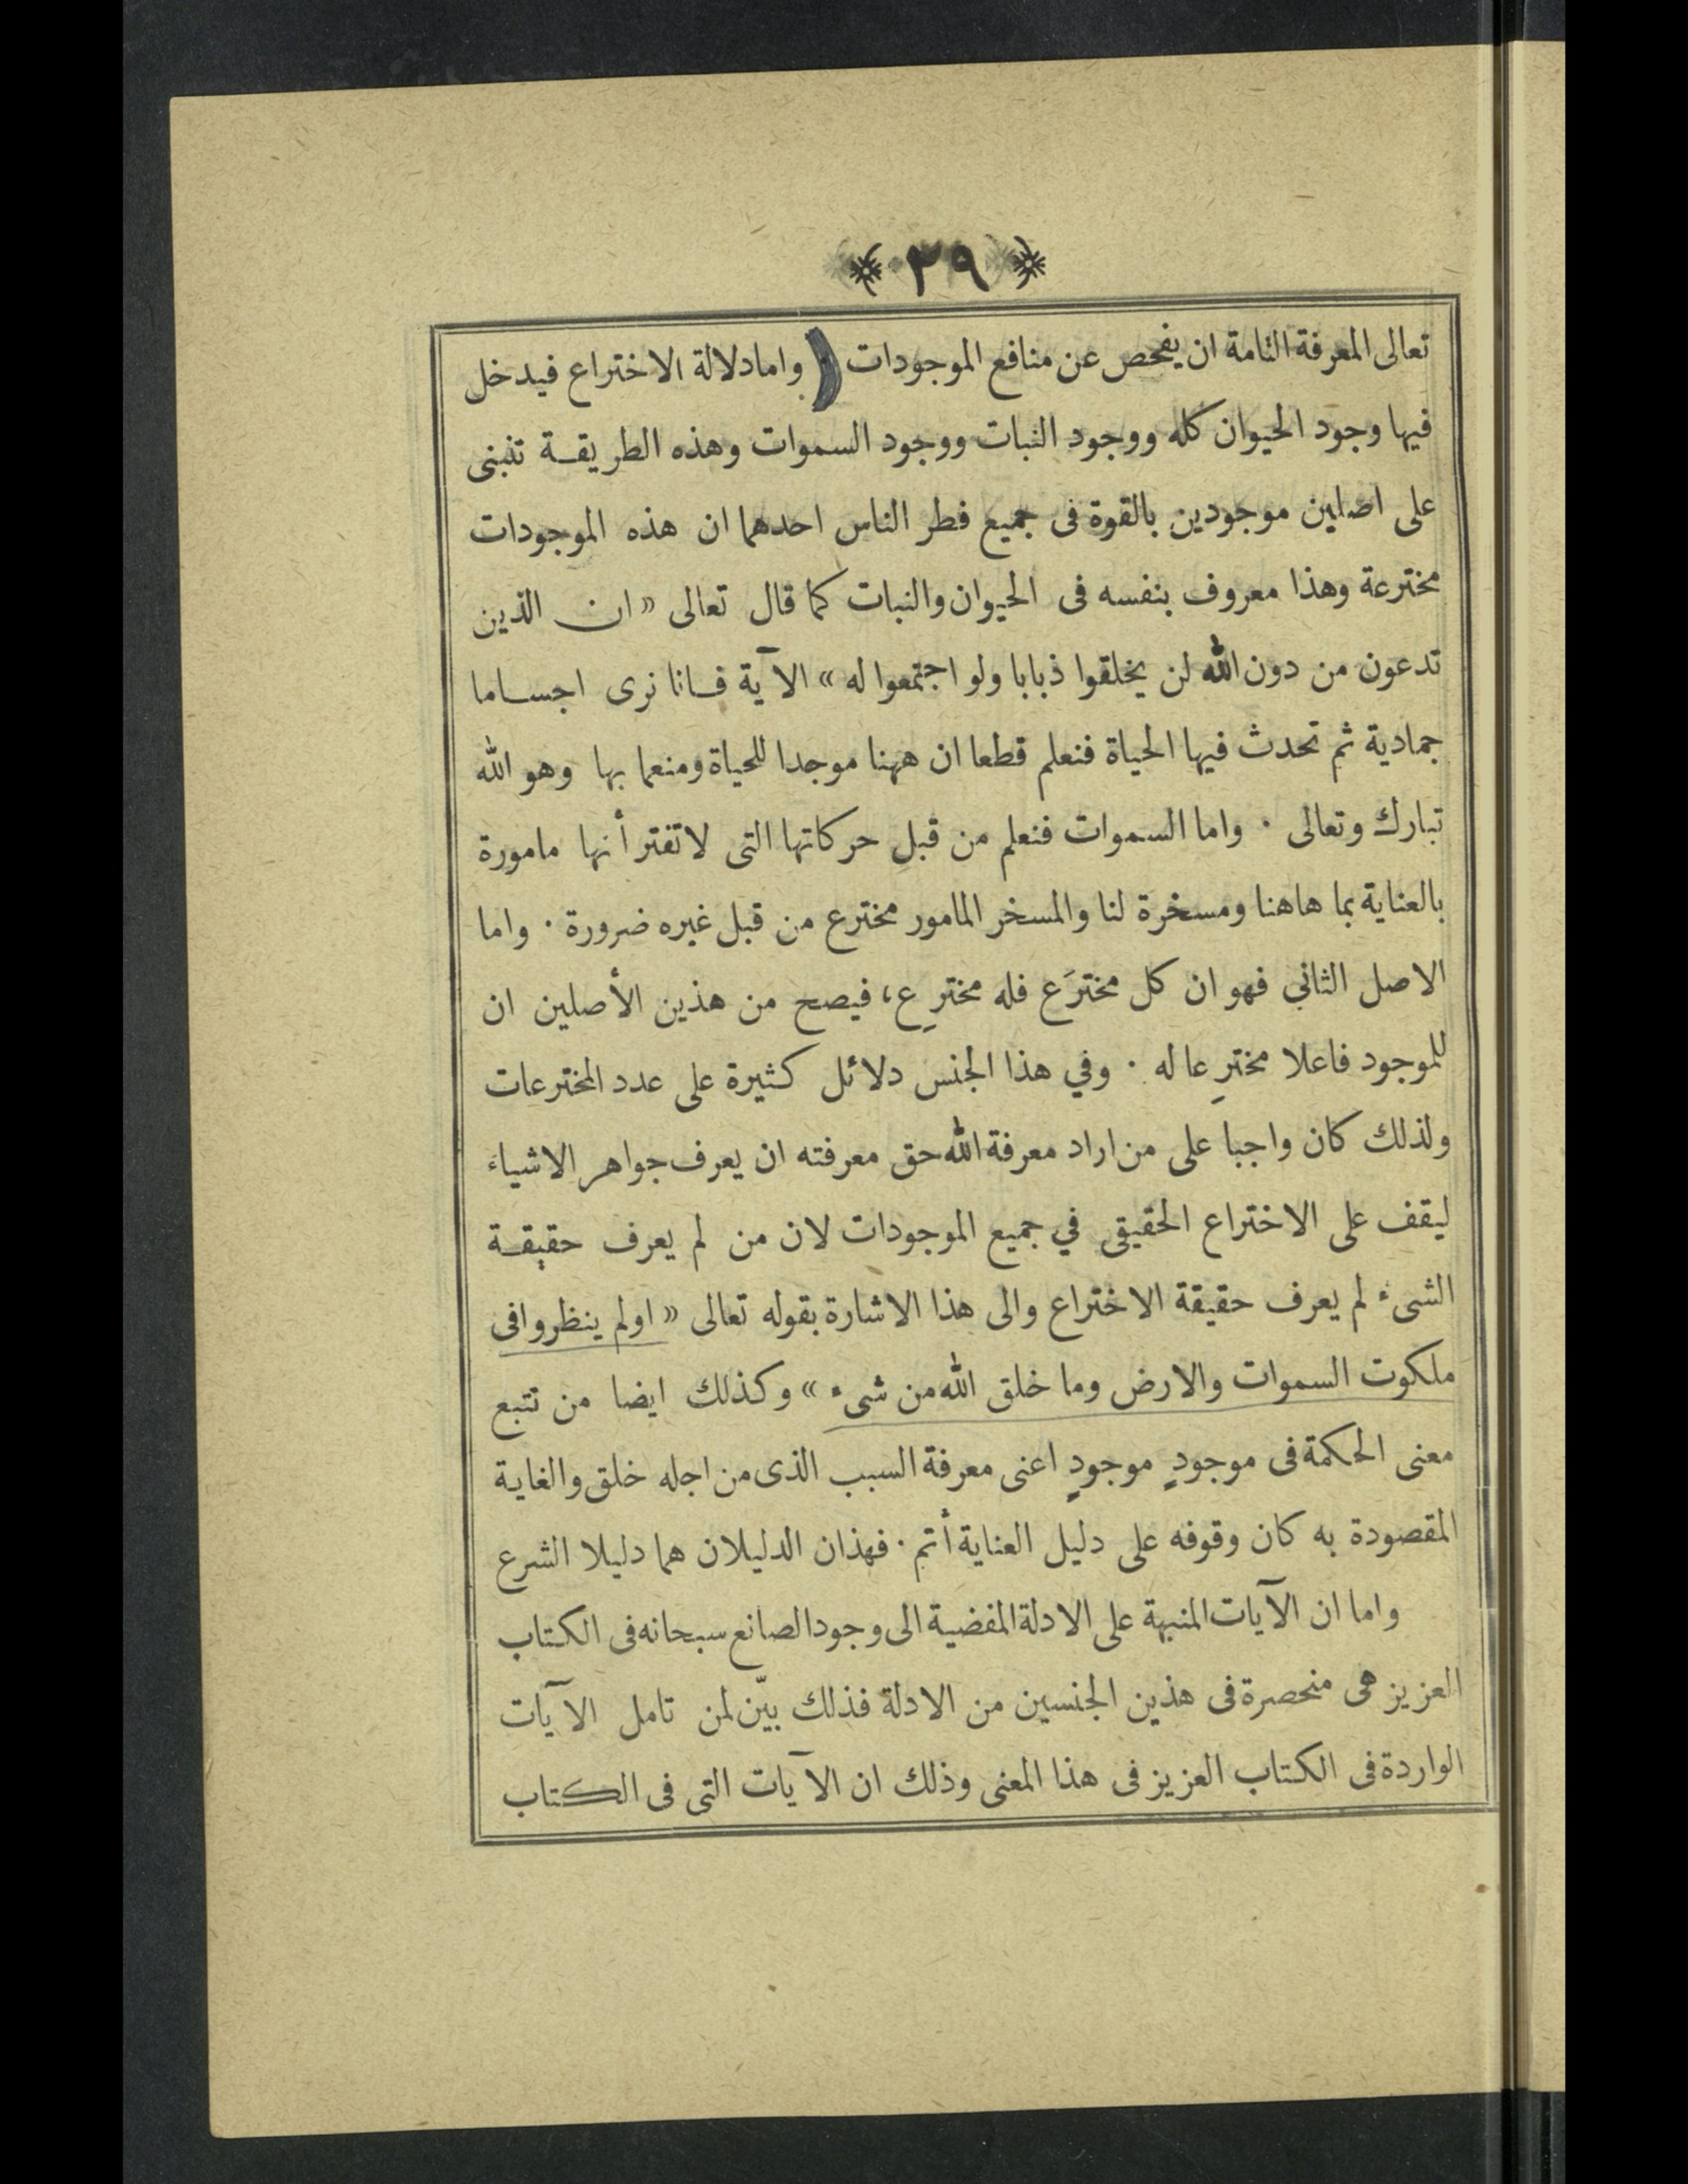 ﴿ ٣٩ ﴾
تعالى المعرفة التامة ان يفحص عن منافع الموجودات · واما دلالة الاختراع فيدخل
فيها وجود الحيوان كله ووجود النبات ووجود السموات وهذه الطريقة تنبنى
على اصلين موجودين بالقوة فى جميع فطر الناس احدهما ان هذه الموجودات
مخترعة وهذا معروف بنفسه فى الحيوان والنبات كما قال تعالى « ان الذين
تدعون من دون الله لن يخلقوا ذبابا ولو اجتمعوا له » الآية فانا نرى اجساما
جمادية ثم تحدث فيها الحياة فنعلم قطعا ان ههنا موجدا للحياة ومنعما بها وهو الله
تبارك وتعالى · واما السموات فنعلم من قبل حركاتها التى لا تفتر أنها مامورة
بالعناية بما هاهنا ومسخرة لنا والمسخر المامور مخترع من قبل غيره ضرورة · واما
الاصل الثاني فهو ان كل مخترَع فله مخترِع، فيصح من هذين الأصلين ان
للموجود فاعلا مخترِعا له · وفي هذا الجنس دلائل كثيرة على عدد المخترعات
ولذلك كان واجبا على من اراد معرفة الله حق معرفته ان يعرف جواهر الاشياء
ليقف على الاختراع الحقيقى في جميع الموجودات لان من لم يعرف حقيقة
الشىء لم يعرف حقيقة الاختراع والى هذا الاشارة بقوله تعالى « اولم ينظروا فى
ملكوت السموات والارض وما خلق الله من شىء » وكذلك ايضا من تتبع
معنى الحكمة فى موجودٍ موجودٍ اعنى معرفة السبب الذى من اجله خلق والغاية
المقصودة به كان وقوفه على دليل العناية أتم · فهذان الدليلان هما دليلا الشرع
واما ان الآيات المنبهة على الادلة المفضية الى وجود الصانع سبحانه فى الكتاب
العزيز هى منحصرة فى هذين الجنسين من الادلة فذلك بيّن لمن تامل الآيات
الواردة فى الكتاب العزيز فى هذا المعنى وذلك ان الآيات التى فى الكتاب